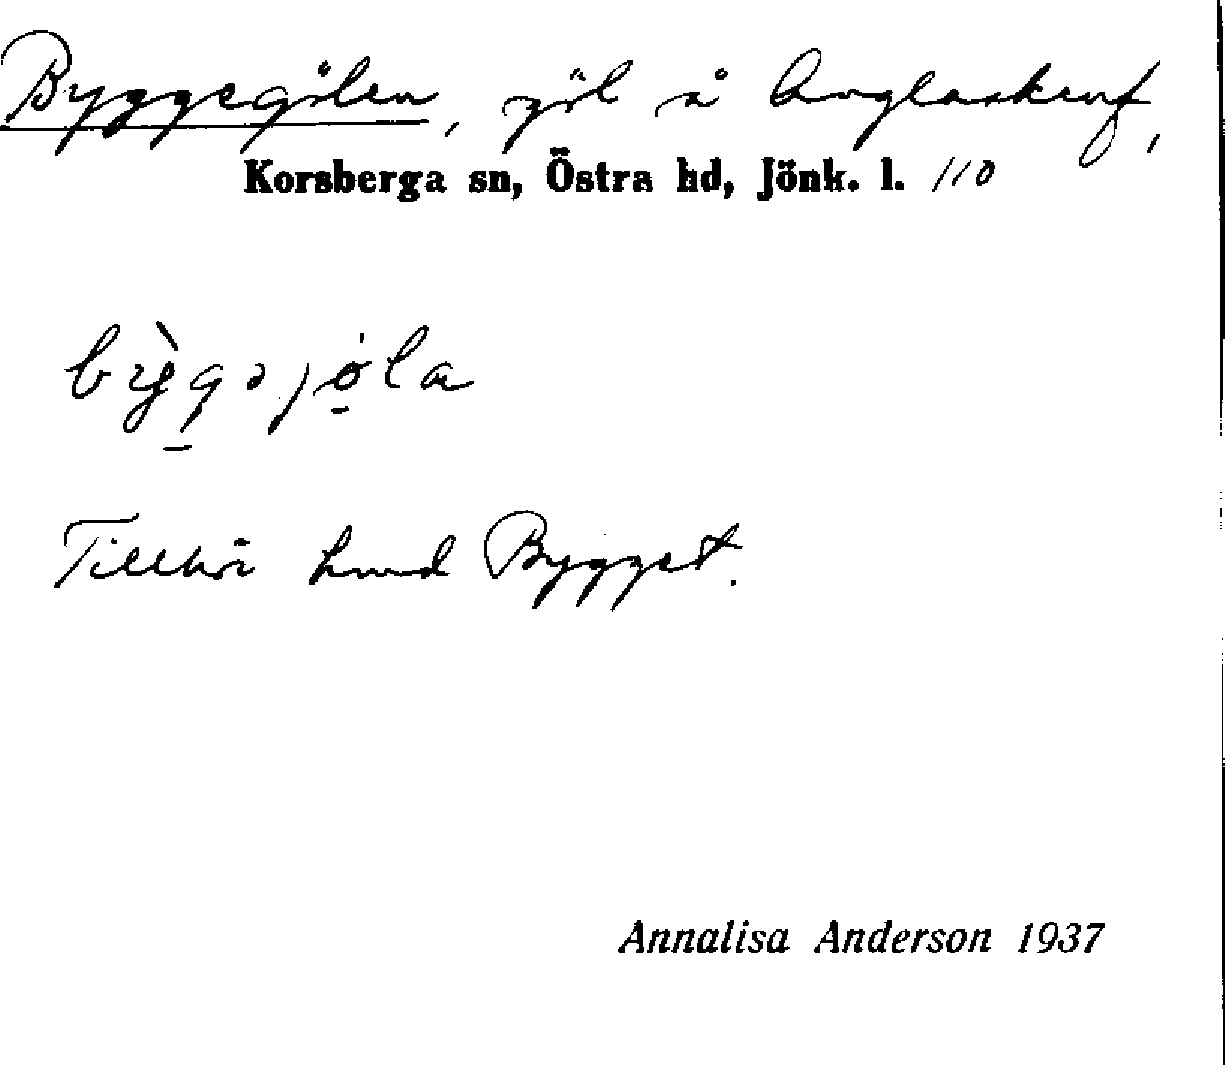 Byggegölen, göl å Anglaskruf,
Korsberga sn, Östra hd, Jönk. l. 110
bỳgəjøla
Tillhör lund Bygget.
Annalisa Anderson 1937